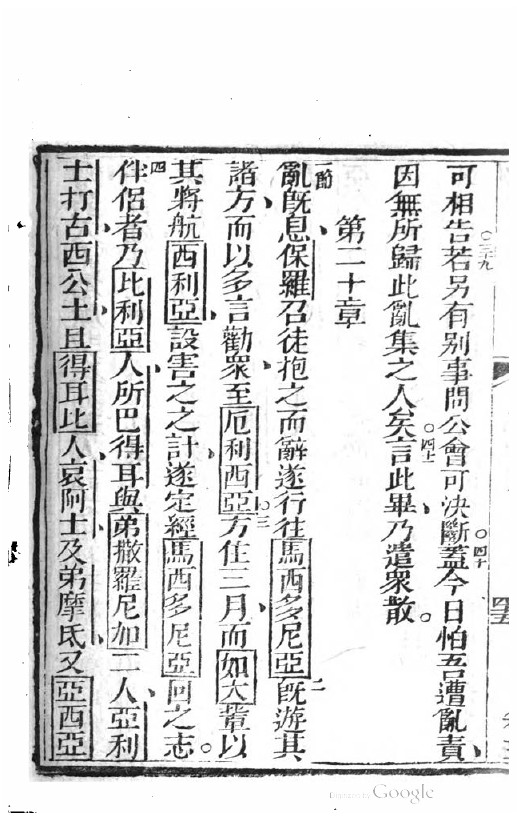 可相告○三十九若另有別事問公會可決斷○四十蓋今日怕吾遭亂責
因無所歸此亂集之人矣○四十一言此畢乃遣眾散。
第二十章
一節亂既息保羅召徒抱之而辭遂行往馬西多尼亞二既游其
諸方而以多言勸眾至厄利西亞○三方住三月而如大輩以
其將航西利亞設害之之計遂定經馬西多尼亞回之志。
四伴侶者乃比利亞人所巴得耳與弟撒羅尼加二人亞利
士打古西公土且得耳比人哀阿士及弟摩氐又亞西亞
Digitized by Google